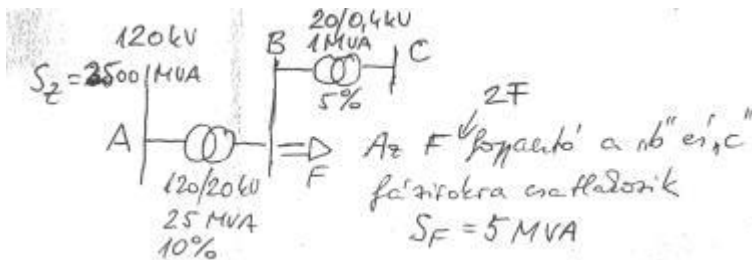 120kV
S_Z = 2500 MVA
A
120/20kV
25 MVA
10%
B
20/0,4kV
1MVA
5%
C
F
2F
Az F fogyasztó a „b” és „c”
fázisokra csatlakozik
S_F = 5 MVA